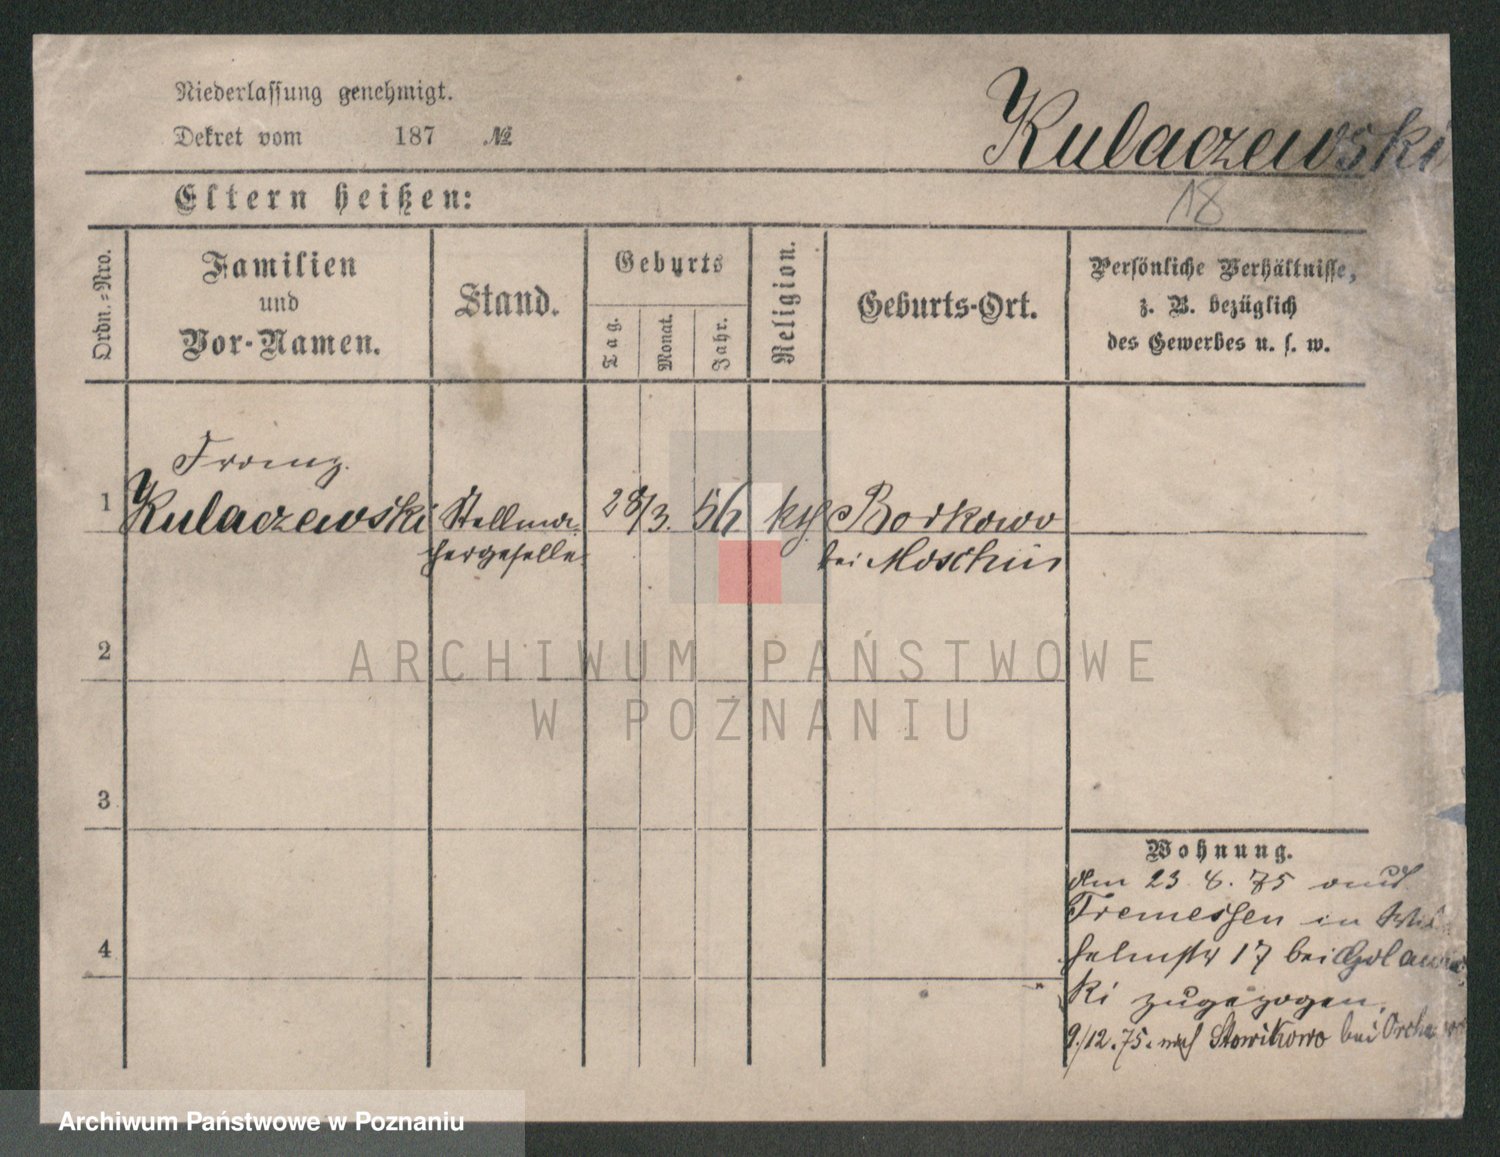 Niederlassung genehmigt.
Dekret vom 187 №
Kulaczewski
18
Eltern heißen:
Ordn.-Nro.
Familien
und
Vor-Namen.
Stand.
Geburts
Tag.
Monat.
Jahr.
Religion.
Geburts-Ort.
Persönliche Verhältnisse,
z. B. bezüglich
des Gewerbes u. s. w.
Franz
1 Kulaczewski Stellma- 28/3. 56 kth Borkowo
chergeselle bei Moschin
ARCHIWUM PAŃSTWOWE
W POZNANIU
2
3
4
Wohnung.
den 23. 8. 75 aus
Tremessen in Wil
helmstr 17 bei
ki zugezogen,
9./12.75. nach bei
Archiwum Państwowe w Poznaniu